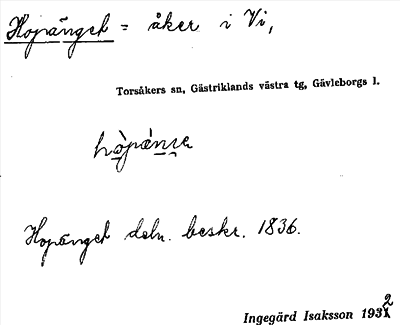 Hopänget = åker i Vi,
Torsåkers sn, Gästriklands västra tg, Gävleborgs l.
Hopänget deln. beskr. 1836.
Ingegärd Isaksson 1932